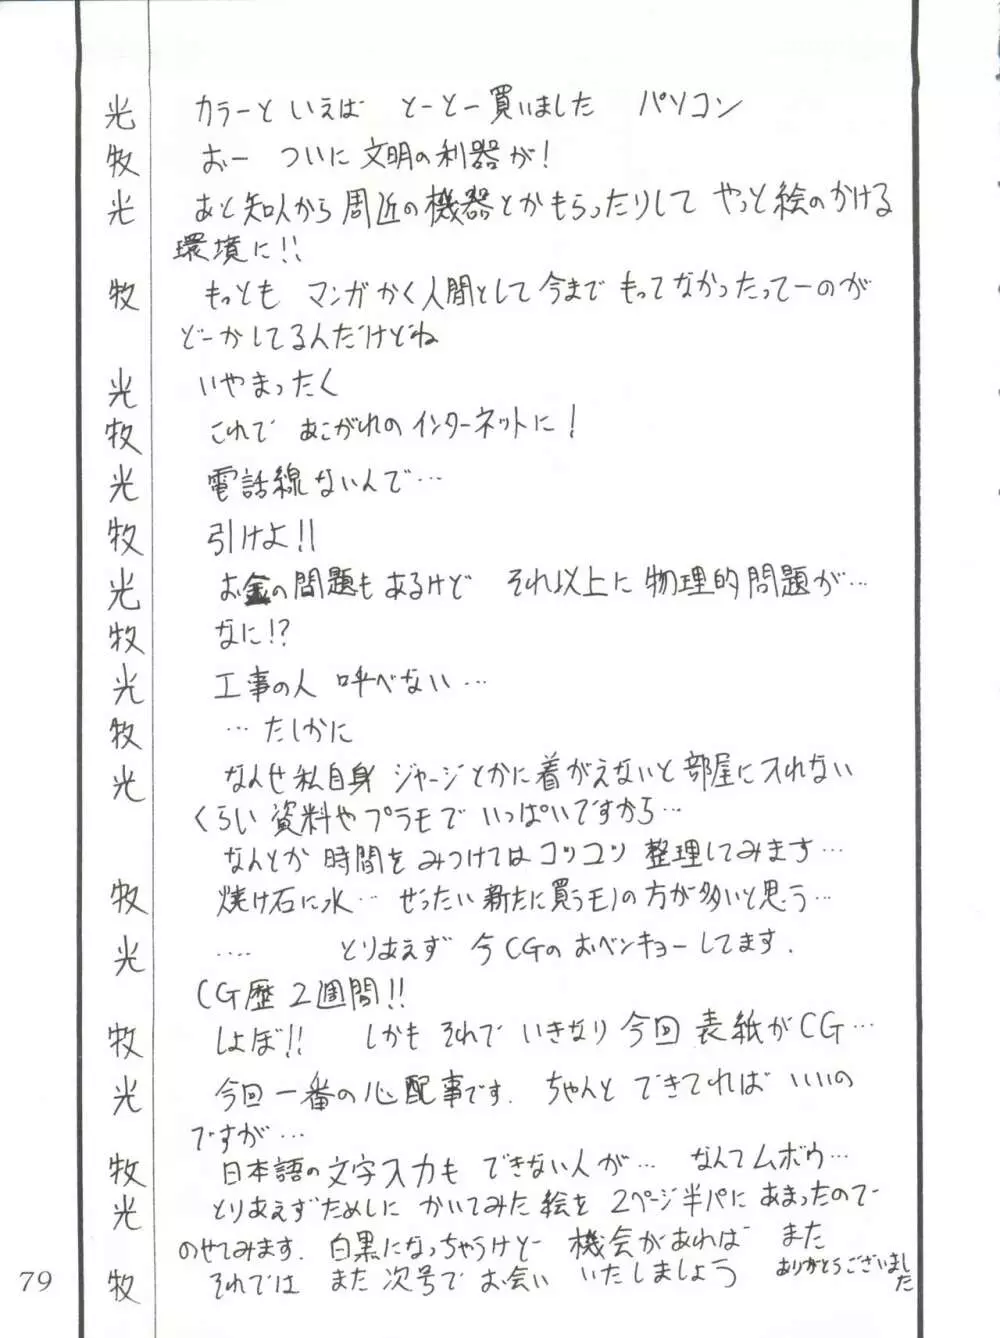 光 カラーと いえば とーとー買いました パソコン
牧 おー ついに 文明の利器が!
光 あと知人から 周辺の機器とかもらったりして やっと絵のかける
環境に!!
牧 もっとも マンガかく人間として今まで もってなかったってーのが
どーかしてるんだけどね
光 いやまったく
牧 これで あこがれのインターネットに!
光 電話線ないんで…
牧 引けよ!!
光 お金の問題もあるけど それ以上に物理的問題が…
牧 なに!?
光 工事の人 呼べない…
牧 …たしかに
光 なんせ私自身 ジャージとかに着がえないと部屋に入れない
くらい 資料やプラモで いっぱいですから…
なんとか時間を みつけてはコツコツ 整理してみます…
牧 焼け石に水… ぜったい新たに買うモノの方が多いと思う…
光 …. とりあえず 今CGのおベンキョーしてます.
CG歴 2週間!!
牧 しょぼ!! しかも それで いきなり今回 表紙がCG…
光 今回一番の心配事です. ちゃんと できてれば いいの
ですが…
牧 日本語の文字入力も できない人が… なんてムボウ…
光 とりあえずためしに かいてみた絵を 2ページ半パにあまったので
のせてみます. 白黒になっちゃうけどー 機会があれば また
79 牧 それでは また次号で お会い いたしましょう ありがとうございまし
た